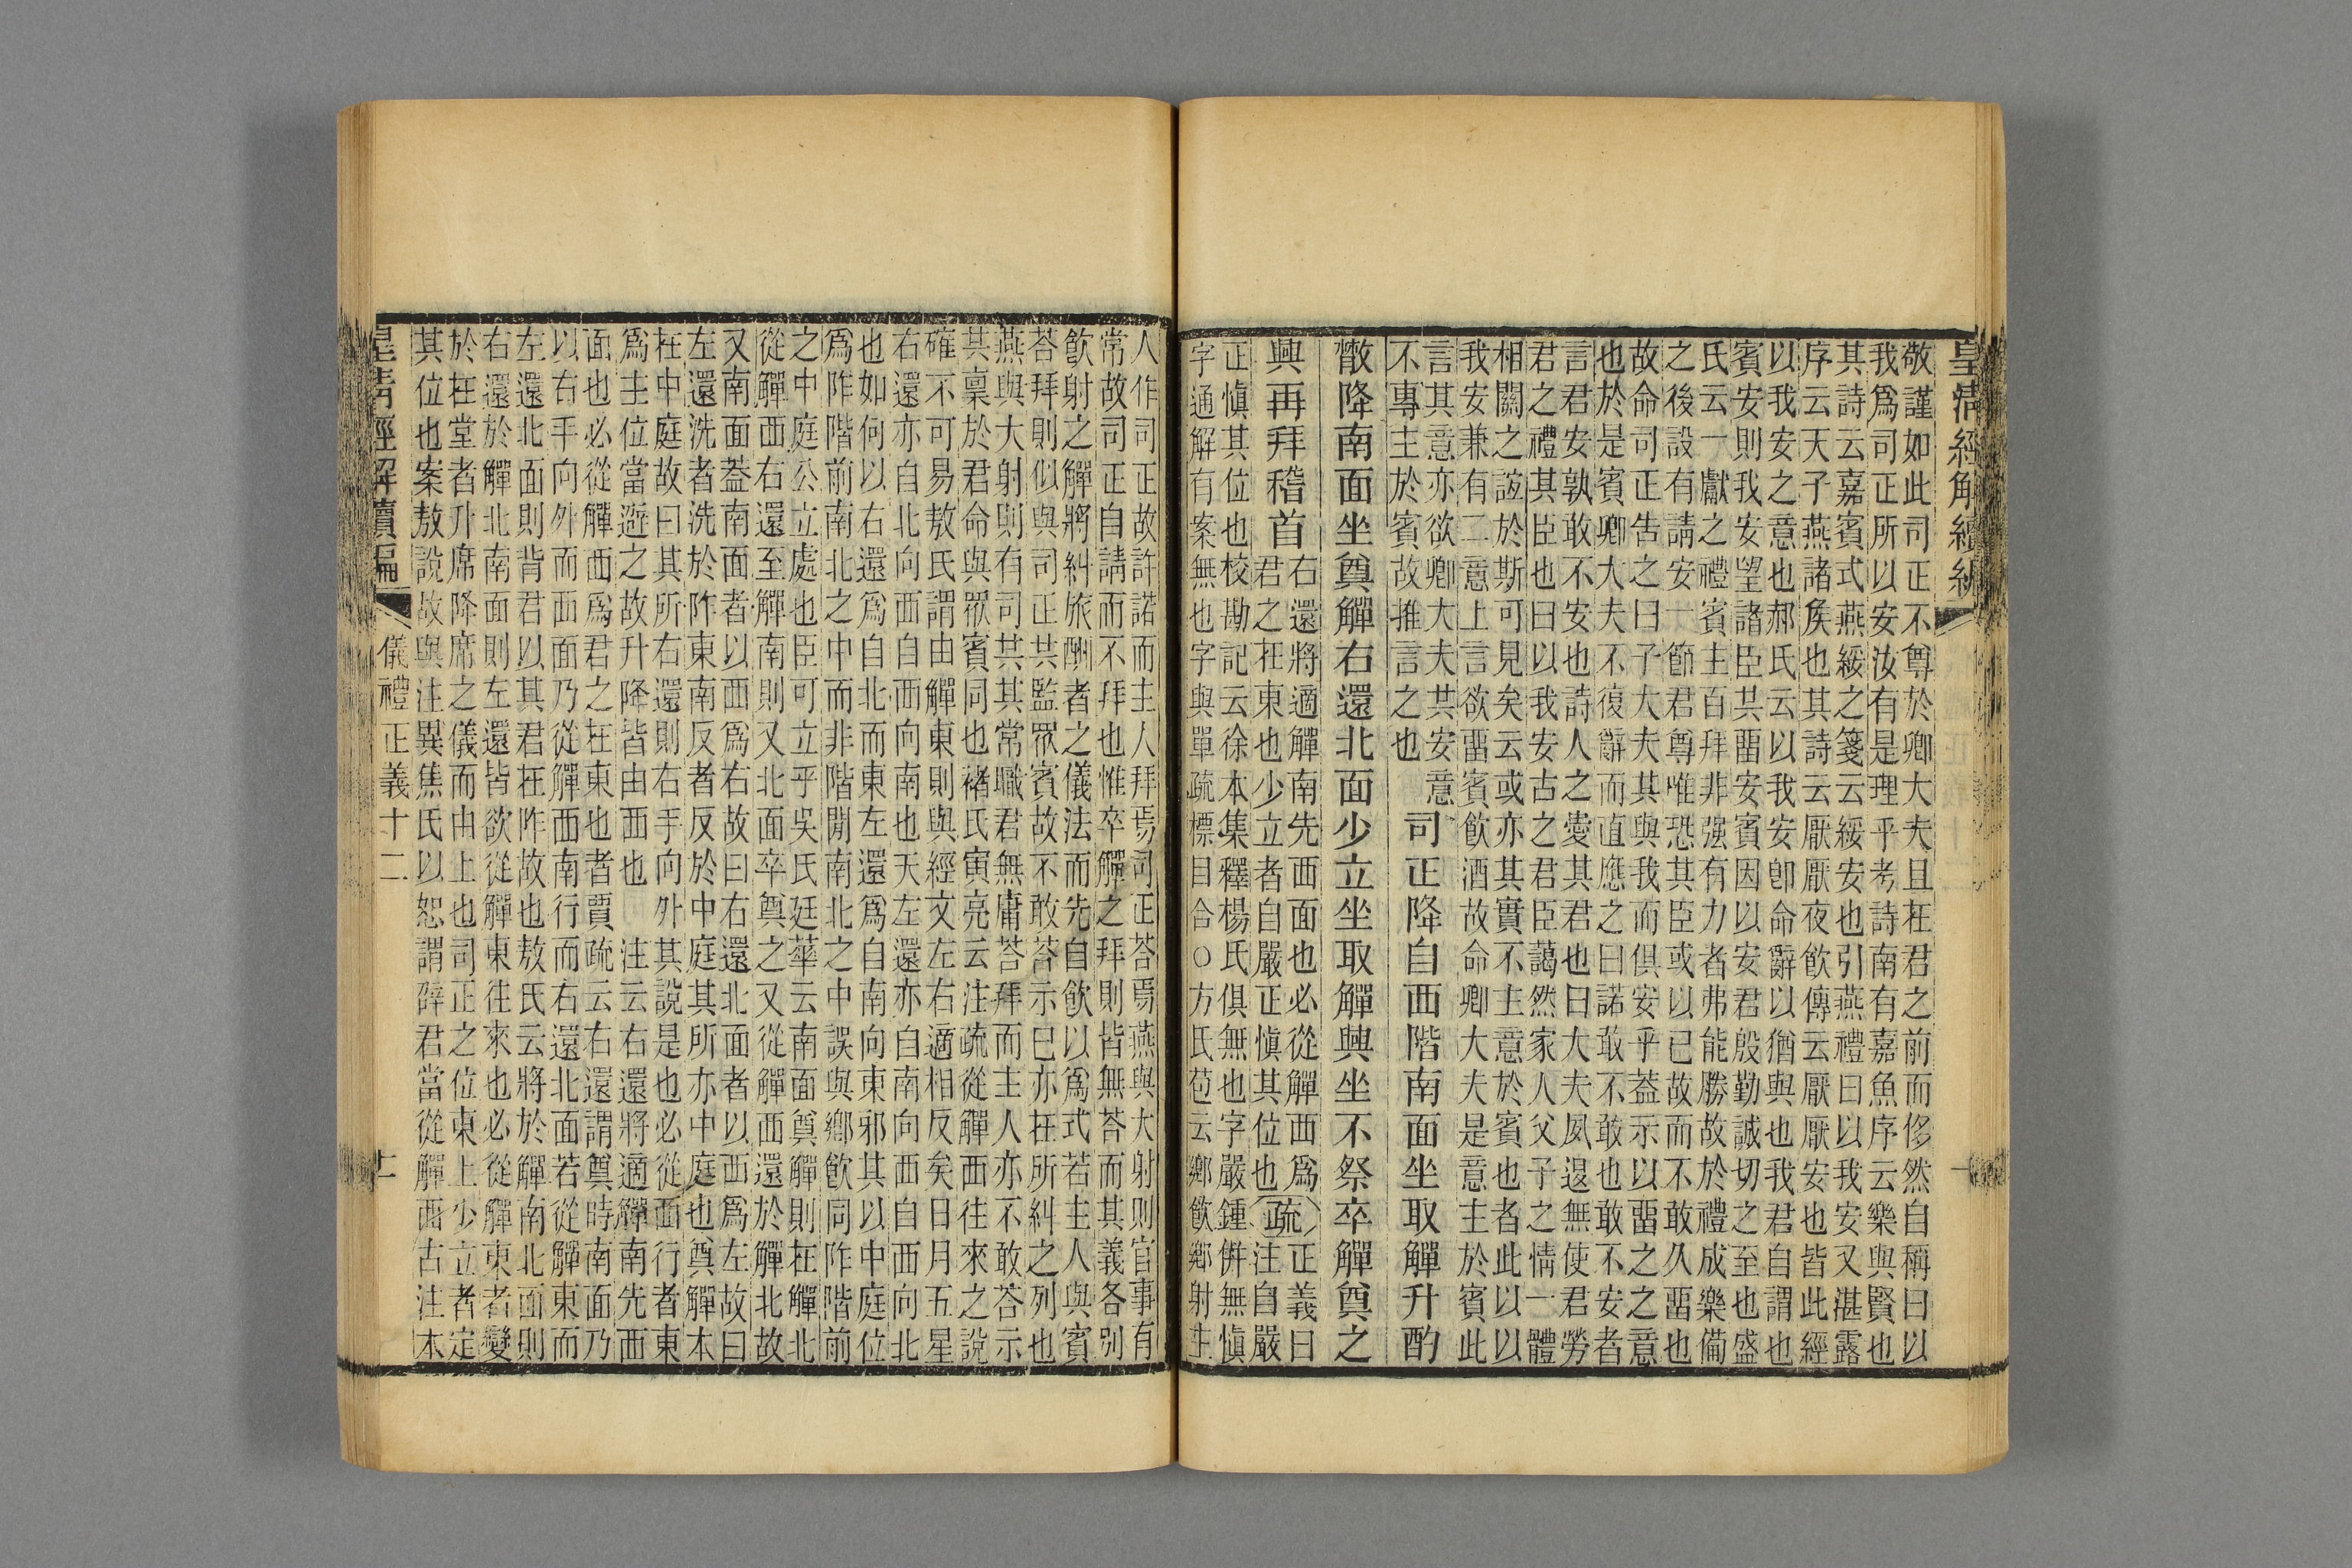 皇清經解續編
敬謹如此司正不尊於卿大夫且在君之前而侈然自稱曰以
我爲司正所以安汝有是理乎考詩南有嘉魚序云樂與賢也
其詩云嘉賓式燕綏之箋云綏安也引燕禮曰以我安又湛露
序云天子燕諸矦也其詩云厭厭夜飮傳云厭厭安也皆此經
以我安之意也郝氏云以我安卽命辭以猶與也我君自謂也
賓安則我安望諸臣共畱安賓因以安君殷勤誠切之至也盛
氏云一獻之禮賓主百拜非强有力者弗能勝故於禮成樂備
之後設有請安一節君尊唯恐其臣或以已故而不敢久畱也
故命司正告之曰子大夫其與我而俱安乎蓋示以畱之之意
也於是賓卿大夫不復辭而直應之曰諾敢不敢也敢不安者
言君安孰敢不安也詩人之愛其君也曰大夫夙退無使君勞
君之禮其臣也曰以我安古之君臣藹然家人父子之情一體
相關之誼於斯可見矣云或亦其實不主意於賓也者此以以
我安兼有二意上言欲畱賓飮酒故命卿大夫是意主於賓此
言其意亦欲卿大夫其安意
不專主於賓故推言之也
司正降自西階南面坐取觶升酌
散降南面坐奠觶右還北面少立坐取觶興坐不祭卒觶奠之
興再拜稽首
右還將適觶南先西面也必從觶西爲
君之在東也少立者自嚴正愼其位也
疏
正義曰
注自嚴
正愼其位也校勘記云徐本集釋楊氏俱無也字嚴鍾倂無愼
字通解有案無也字與單疏標目合○方氏苞云鄉飮鄉射主
人作司正故許諾而主人拜焉司正荅焉燕與大射則官事有
常故司正自請而不拜也惟卒觶之拜則皆無荅而其義各別
飮射之觶將糾旅酬者之儀法而先自飮以爲式若主人與賓
荅拜則似與司正共監眾賓故不敢荅示已亦在所糾之列也
燕與大射則有司其其常職君無庸荅拜而主人亦不敢荅示
其稟於君命與眾賓同也褚氏寅亮云注疏從觶西往來之說
確不可易敖氏謂由觶東則與經文左右適相反矣日月五星
右還亦自北向西自西向南也天左還亦自南向西自西向北
也如何以右還爲自北而東左還爲自南向東邪其以中庭位
爲阼階前南北之中而非階閒南北之中誤與鄉飮同阼階前
之中庭公立處也臣可立乎吳氏廷華云南面奠觶則在觶北
從觶西右還至觶南則又北面卒奠之又從觶西還於觶北故
又南面蓋南面者以西爲右故曰右還北面者以西爲左故曰
左還洗者洗於阼東南反者反於中庭其所亦中庭也奠觶本
在中庭故曰其所右還則右手向外其說是也必從面行者東
爲主位當避之故升降皆由西也　注云右還將適觶南先西
面也必從觶西爲君之在東也者賈疏云右還謂奠時南面乃
以右手向外而西面乃從觶西南行而右還北面若從觶東而
左還北面則背君以其君在阼故也敖氏云將於觶南北面則
右還於觶北南面則左還皆欲從觶東往來也必從觶東者變
於在堂者升席降席之儀而由上也司正之位東上少立者定
其位也案敖說故與注異焦氏以恕謂薛君當從觶西古注本
皇清經解續編
儀禮正義十二